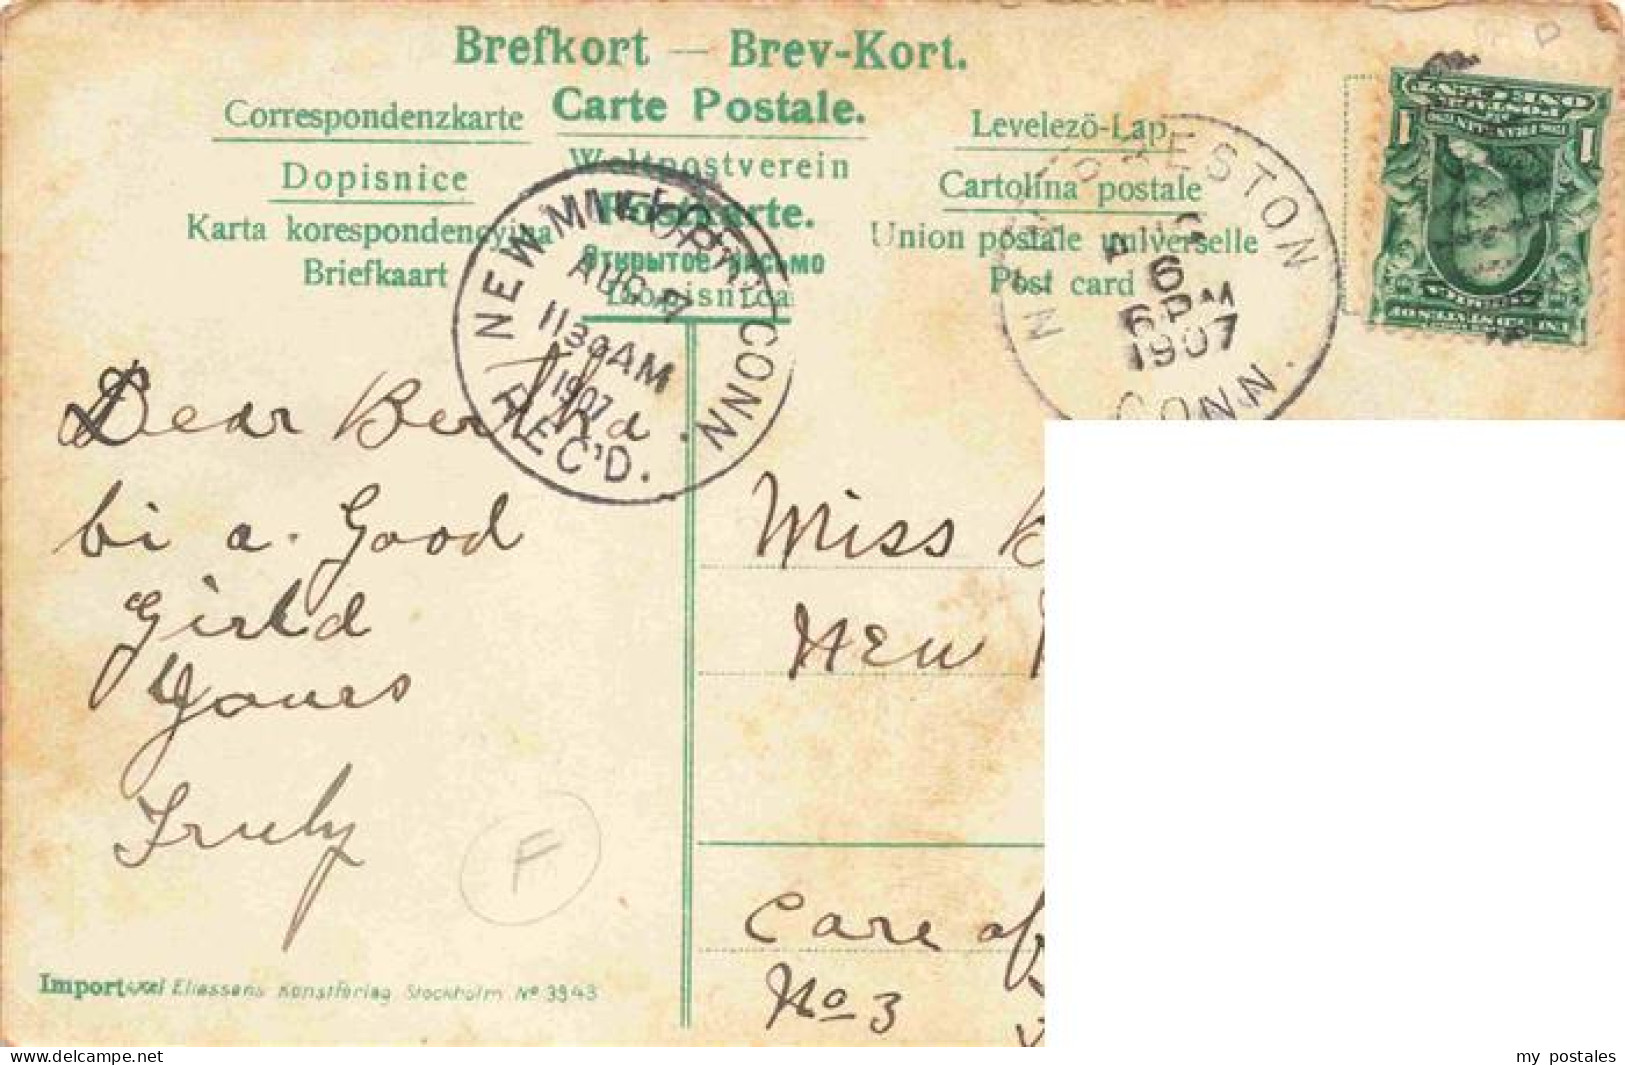 Brefkort — Brev-Kort.
Correspondenzkarte Carte Postale. Levelezö-Lap.
Dopisnice Weltpostverein Cartolina postale
Karta korespondencyjna Postkarte. Union postale universelle
Briefkaart Открытое письмо Post card
Dopisnica
NEW MILFORD CONN
AUG 7
1130AM
1907
REC'D.
PRESTON
CONN.
6
6 PM
1907
ONE CENT
1 1
Dear Bertha.
bi a. Good
Girld
Yours
Truly
F
Miss
New
Care of
No 3
Import Axel Eliassons Konstförlag Stockholm Nº 3943
www.delcampe.net my postales